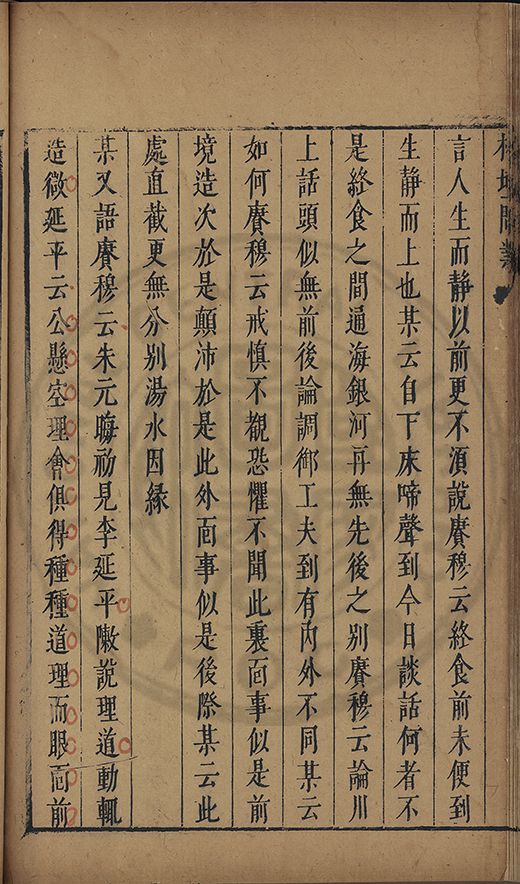 言人生而靜以前更不須說賡穆云終食前未便到
生靜而上也某云自下床啼聲到今日談話何者不
是終食之間通海銀河再無先後之別賡穆云論川
上話頭似無前後論調御工夫到有內外不同某云
如何賡穆云戒慎不覩恐懼不聞此裏面事似是前
境造次於是顛沛於是此外面事似是後際某云此
處直截更無分別湯水因緣
某又語賡穆云朱元晦初見李延平敶說理道動輒
造微延平云公懸空理會俱得種種道理而眼面前